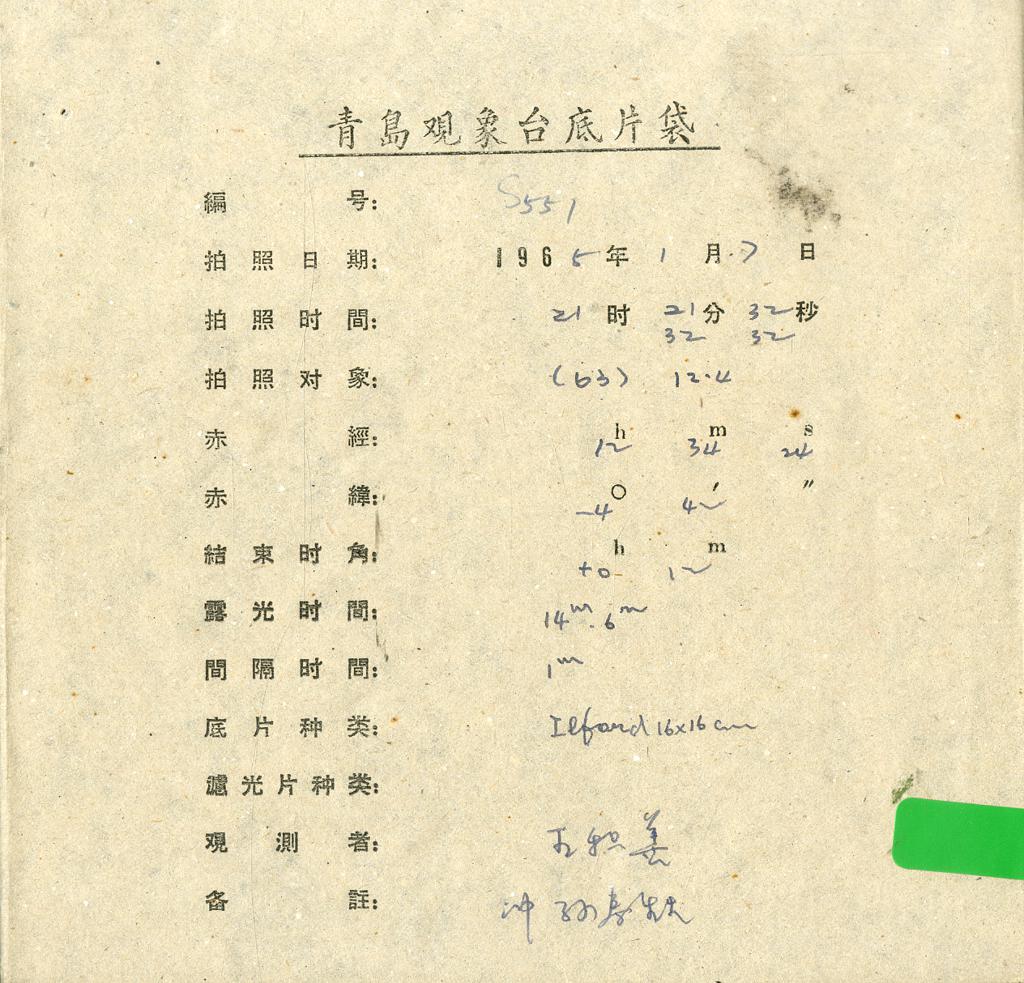 青島观象台底片袋
編号: S551
拍照日期: 1965年 1月 7日
拍照时間: 21时 21分 32秒
32 32
拍照对象: (63) 12.4
赤經: 12h 34m 24s
赤緯: -4° 42′ ″
結束时角: +0h 12m
露光时間: 14m. 6m
間隔时間: 1m
底片种类: Ilford 16x16cm
濾光片种类:
观測者:
备註: 冲